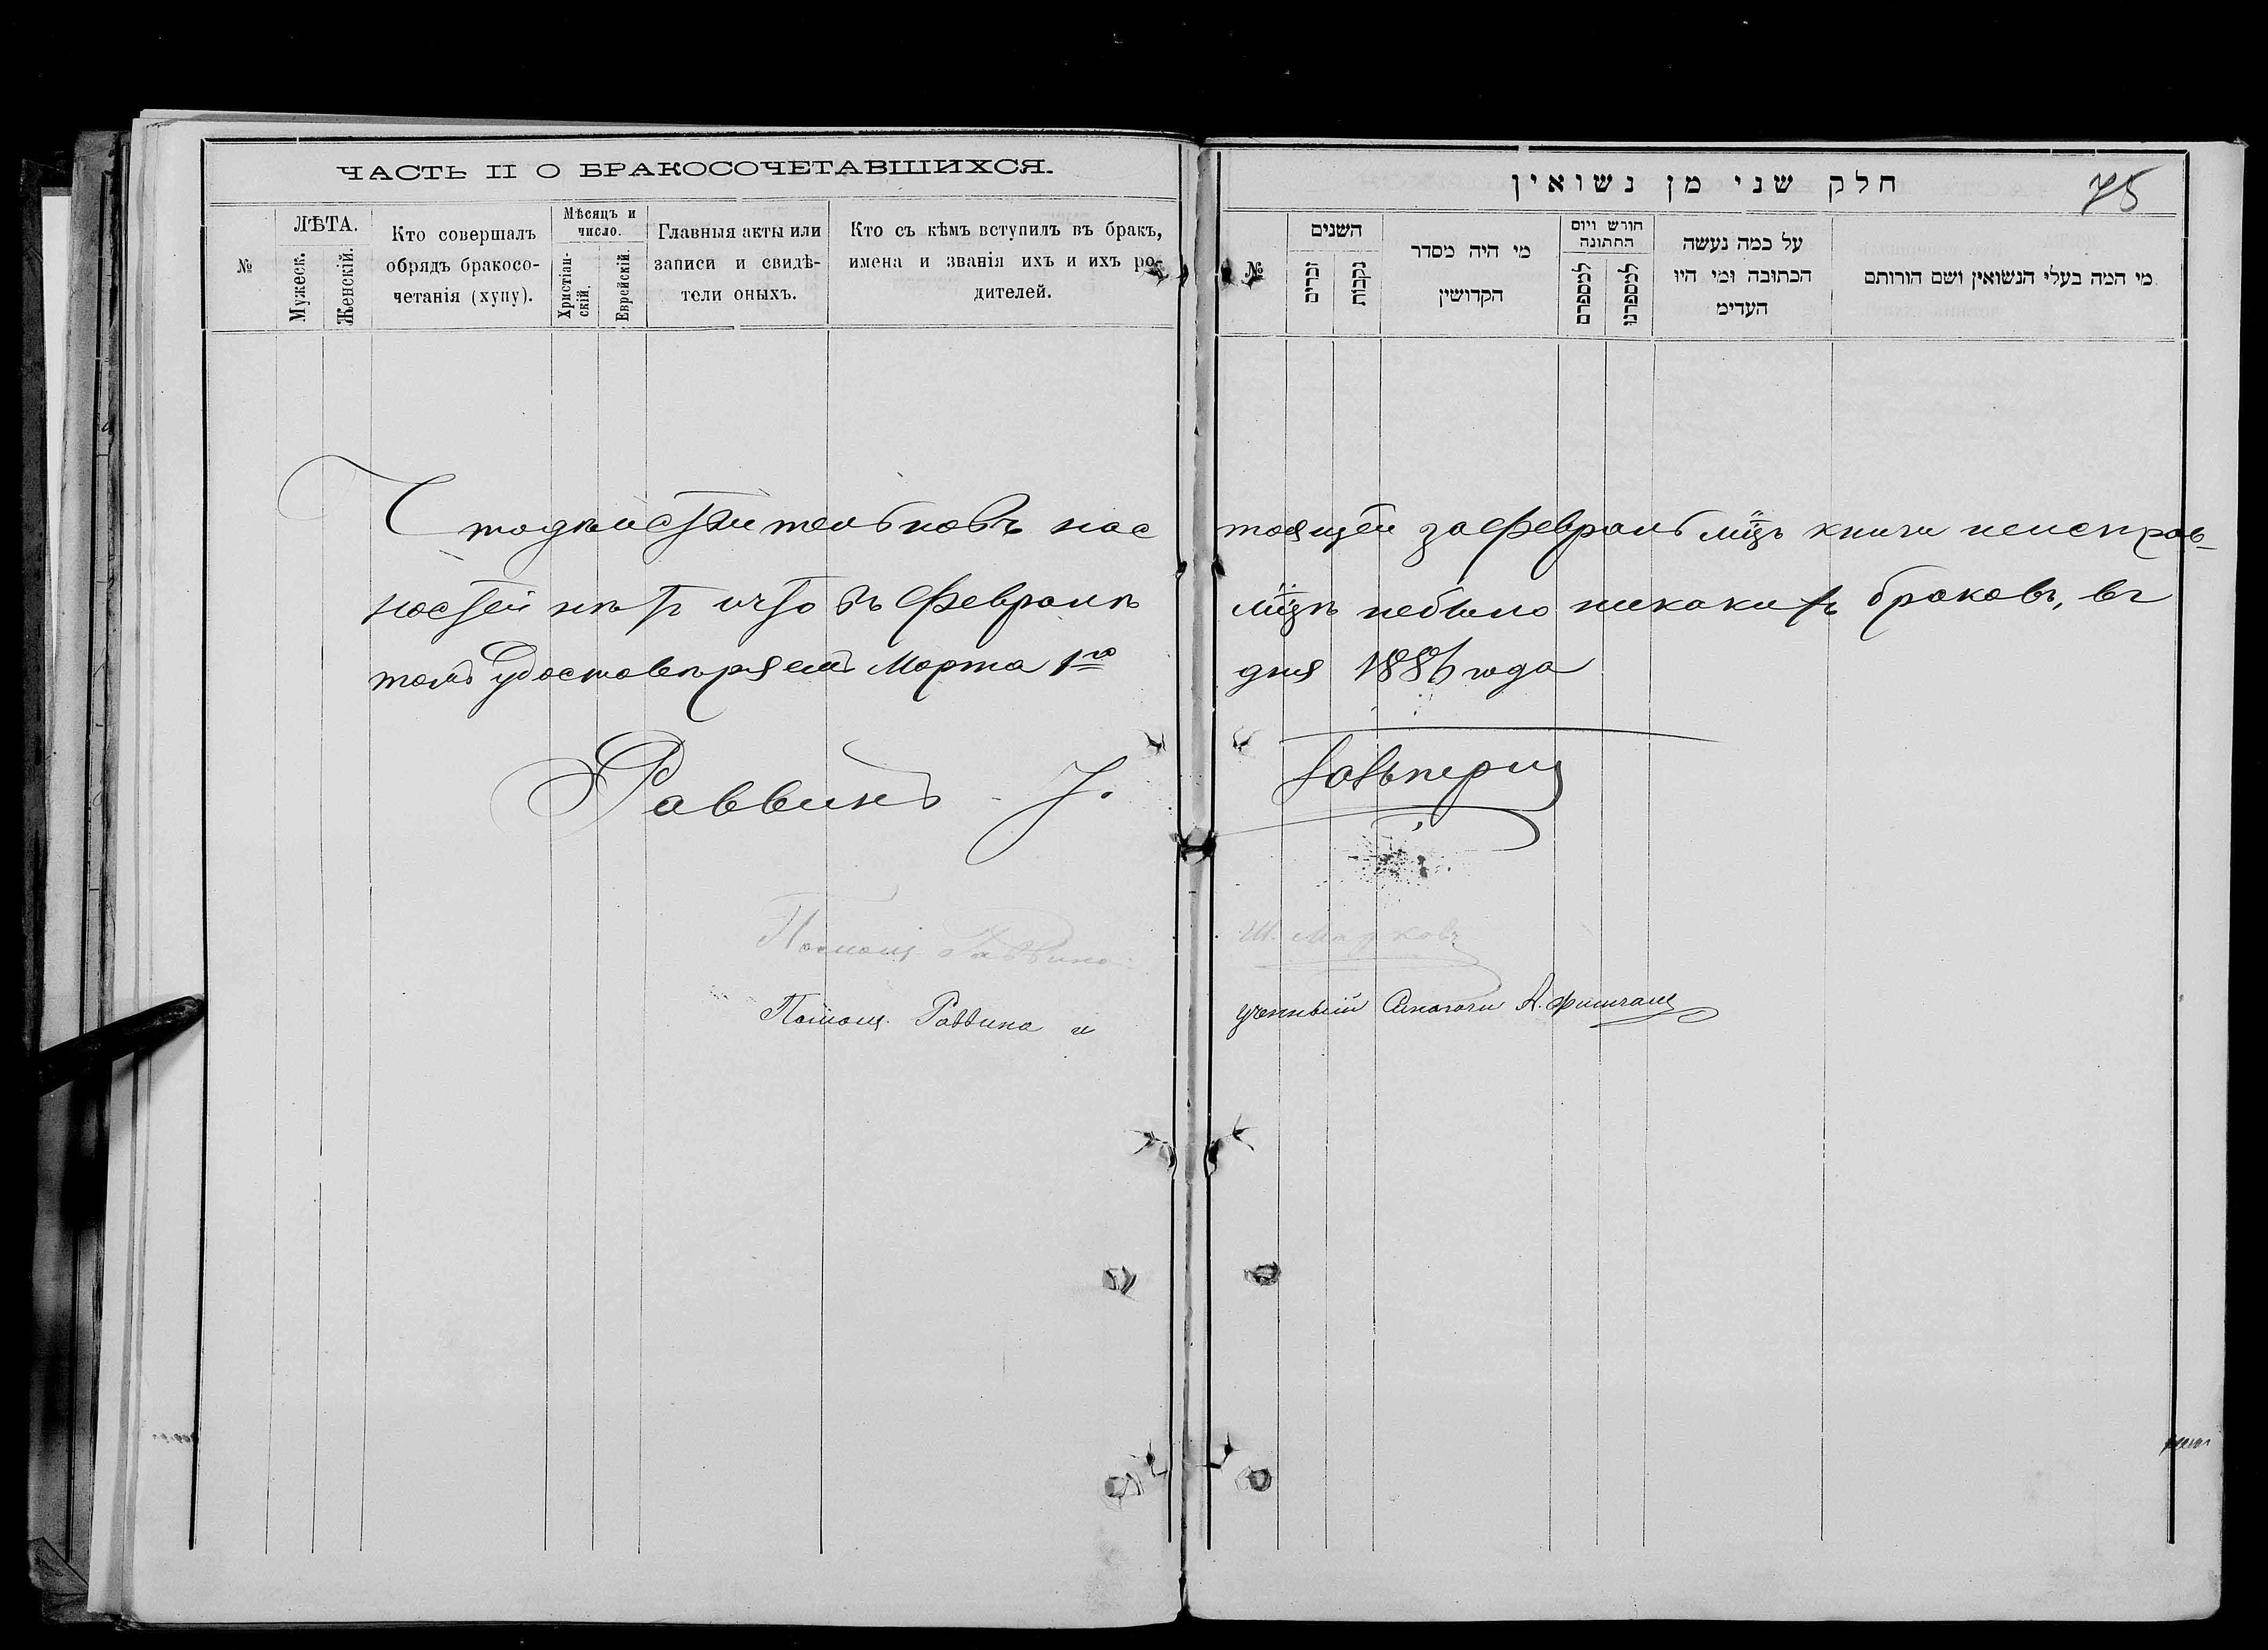 ЧАСТЬ II О БРАКОСОЧЕТАВШИХСЯ.
№
ЛѢТА.
Мужеск.
Женскій.
Кто совершалъ
обрядъ бракосо-
четанія (хупу).
Мѣсяцъ и
число.
Христіан-
скій.
Еврейскій.
Главныя акты или
записи и свидѣ-
тели оныхъ.
Кто съ кѣмъ вступилъ въ бракъ,
имена и званія ихъ и ихъ ро-
дителей.
חלק שני מן נשואין
75
№
השנים
זכרים
נקבות
מי היה מסדר
הקדושין
חורש ויום
החתונה
למספרם
למספרנו
על כמה נעשה
הכתובה ומי היו
העדימ
מי המה בעלי הנשואין ושם הורותם
Что дѣйствительновъ нас тоящей за Февраль мцъ книги неисправ-
ностей нѣтъ ичто въ Февралѣ мцѣ небыло никакихъ браковъ, въ
томъ удостовѣряемъ Марта 1го дня 1886 года
Раввинъ Г. Гальперин
Помощ. Раввина Ш. Марковъ
Помощ. Раввина и ученный Синагоги А. Фишгац